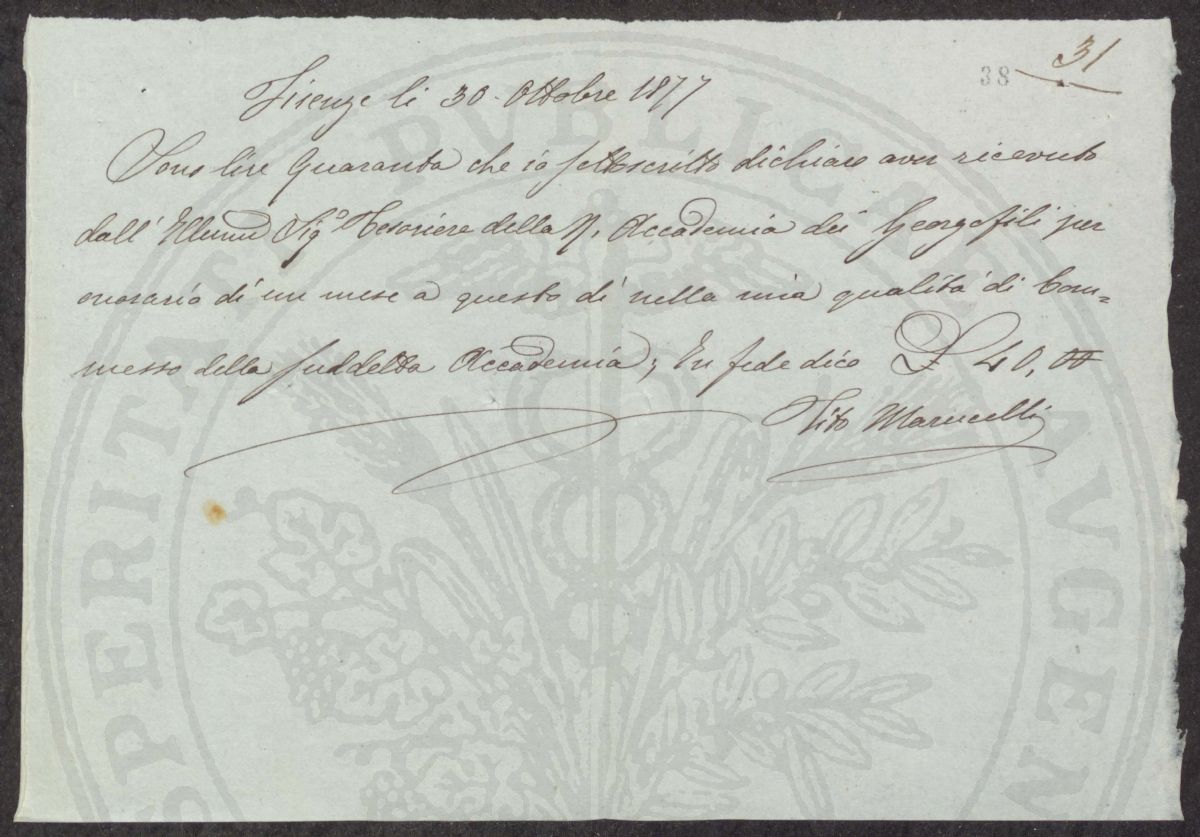 31
38
Firenze li 30. Ottobre 1877
Sono lire Quaranta che io sottoscritto dichiaro aver ricevuto
dall' Illmo Sigo Tesoriere della R. Accademia dei Georgofili per
onorario di un mese a questo dì nella mia qualità di Com-
messo della suddetta Accademia; In fede dico £ 40,00
Tito Marucelli
PROSPERITATI PVBLICAE AVGEN